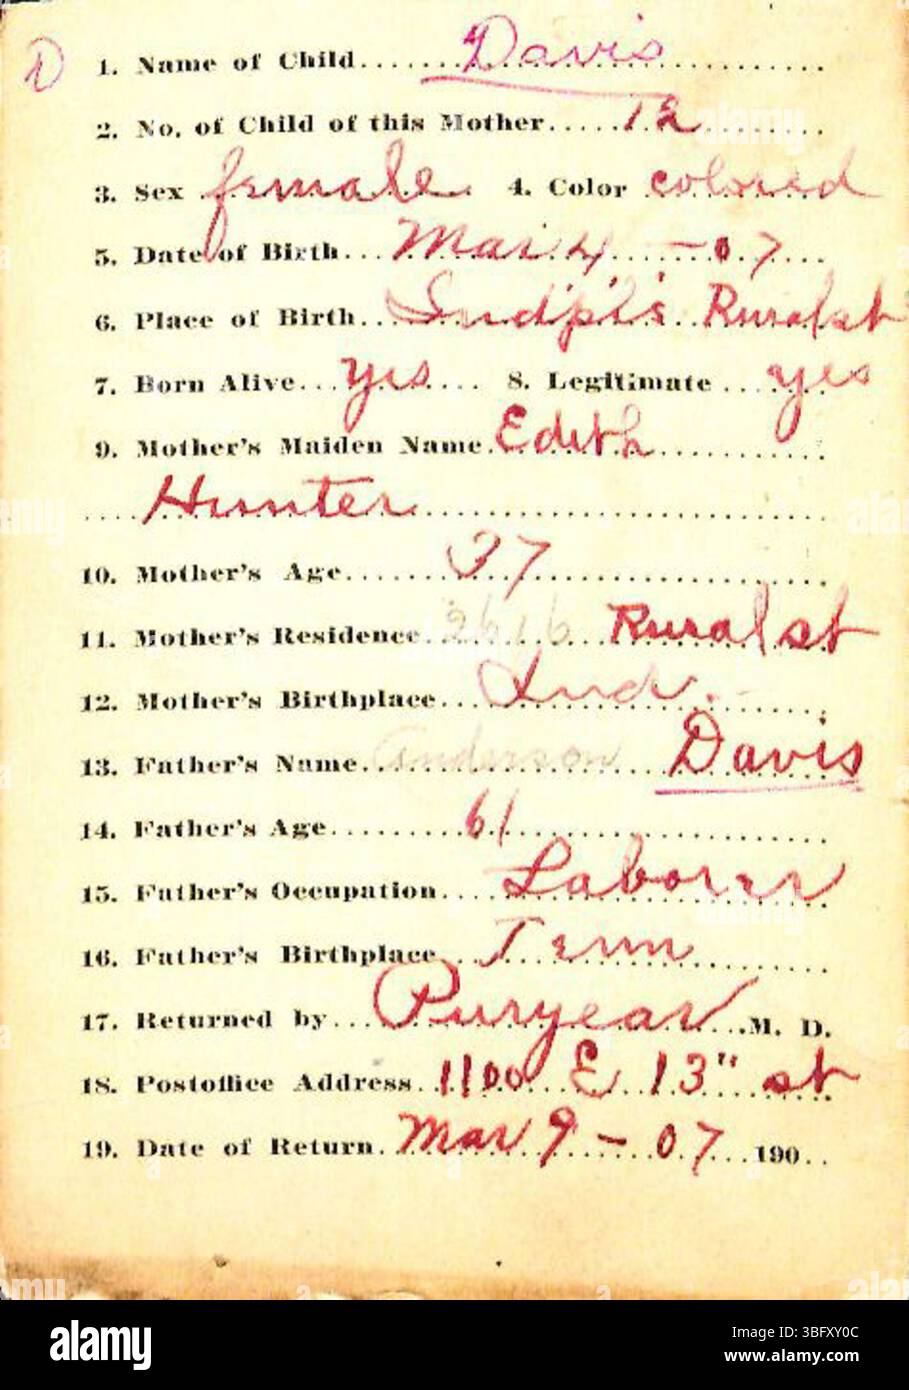 D 1. Name of Child Davis
2. No. of Child of this Mother 12
3. Sex female 4. Color colored
5. Date of Birth Mar 4 - 07
6. Place of Birth Ind'pl's Rural st
7. Born Alive yes 8. Legitimate yes
9. Mother's Maiden Name Edith
Hunter
10. Mother's Age 37
11. Mother's Residence 2616 Rural st
12. Mother's Birthplace Ind.
13. Father's Name Anderson Davis
14. Father's Age 61
15. Father's Occupation Laborer
16. Father's Birthplace Tenn
17. Returned by Puryear M. D.
18. Postoffice Address 1100 E 13" st
19. Date of Return Mar 9 - 07 190
alamy
Image ID: 3BFXY0C
www.alamy.com